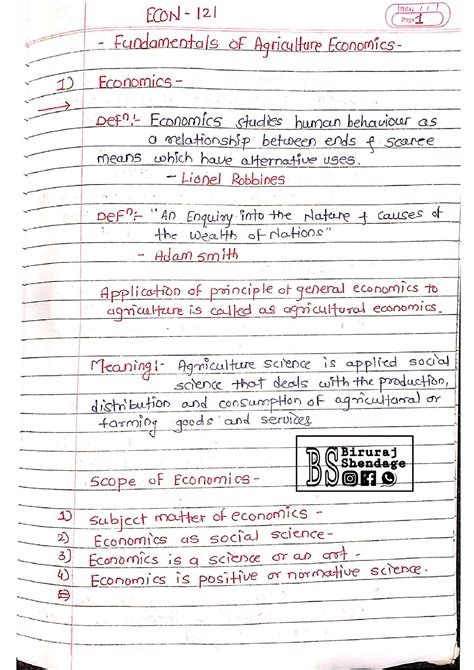 ECON - 121
Date: / /
Page: 1
- Fundamentals of Agriculture Economics -
1) Economics -
→ Defⁿ:- Economics studies human behaviour as
a relationship between ends & scarce
means which have alternative uses.
- Lionel Robbines
Defⁿ:- "An Enquiry into the Nature & causes of
the Wealth of Nations"
- Adam smith
Application of principle of general economics to
agriculture is called as agricultural economics.
Meaning:- Agriculture science is applied social
science that deals with the production,
distribution and consumption of agricultural or
farming goods and services.
BS Biruraj
Shendage
Scope of Economics -
1) Subject matter of economics -
2) Economics as social science -
3) Economics is a science or an art -
4) Economics is positive or normative science.
5)